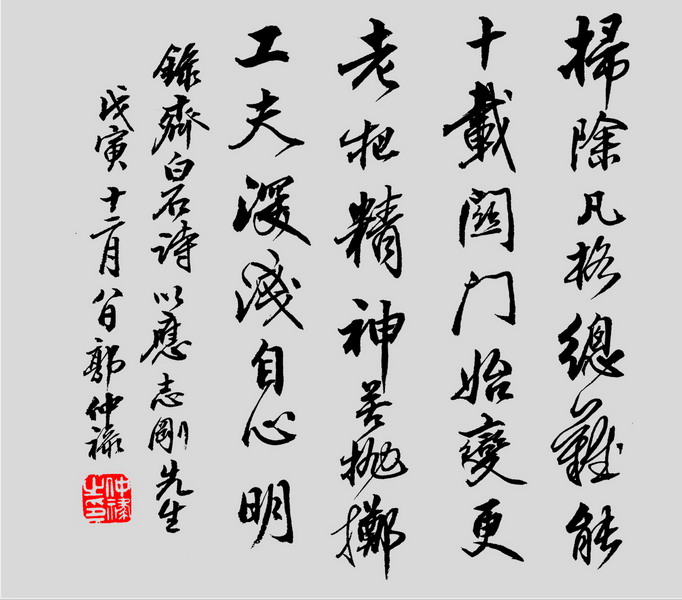 掃除凡格總難能
十載關門始變更
老把精神苦拋擲
工夫深淺自心明
錄齊白石詩以應志剛先生
戊寅十二月八日郭仲祿
仲祿之印